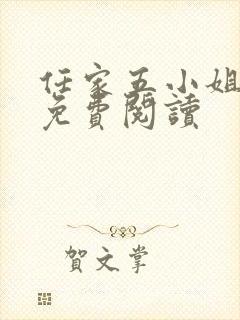 任家五小姐
免費閱讀
賀文掌